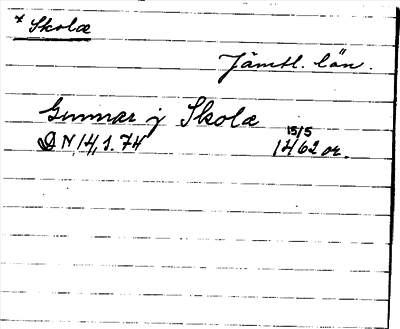 * Skolæ
Jämtl. län.
Gunnar j Skolæ
DN 14,1.74
15/5
1462 or.